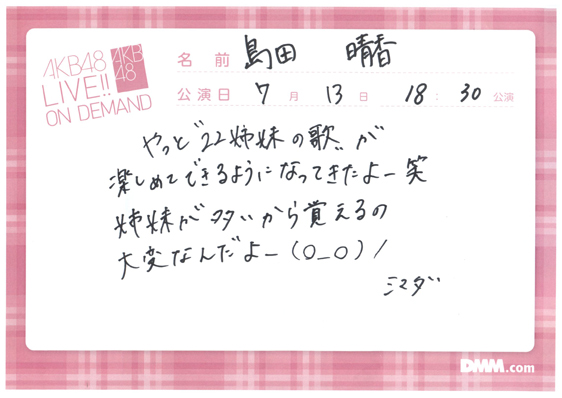 AKB48
LIVE!!
ON DEMAND
AKB
48
名前 島田 晴香
公演日 7月 13日 18:30公演
やっと"22姉妹の歌"が
楽しめてできるようになってきたよー笑
姉妹が多いから覚えるの
大変なんだよー(O_O)/
シマダ
DMM.com